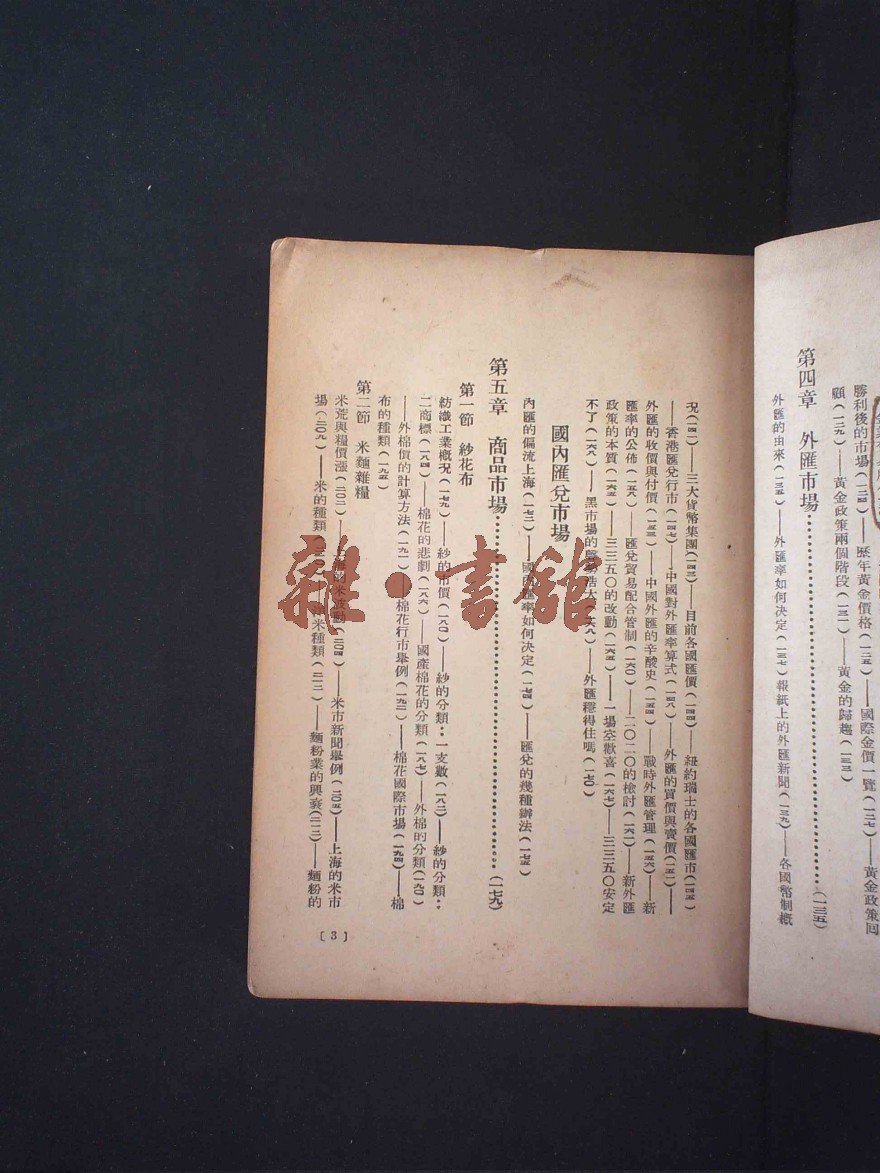 勝利後的市場(一二四)——歷年黃金價格(一二五)——國際金價一覽(一二七)——黃金政策回
顧(一二九)——黃金政策兩個階段(一三一)——黃金的歸趨(一三三)
第四章　外匯市場(一三五)
外匯的由來(一三五)——外匯率如何决定(一三七)報紙上的外匯新聞(一三九)——各國幣制概
況(一四一)——三大貨幣集團(一四三)——目前各國匯價(一四四)——紐約瑞士的各國匯市(一四五)
——香港匯兌行市(一四七)——中國對外匯率算式(一四八)——外匯的買價與賣價(一五二)——
外匯的收價與付價(一五三)——中國外匯的辛酸史(一五四)——戰時外匯管理(一五六)——新
匯率的公佈(一五八)——匯兌貿易配合管制(一六〇)——二〇二〇的檢討(一六一)——新外匯
政策的本質(一六二)——三三五〇的改動(一六五)——一場空歡喜(一六七)——三三五〇安定
不了(一六八)——黑市場的聲勢浩大(一六八)——外匯穩得住嗎(一七〇)
國內匯兌市場
內匯的偏流上海(一七三)——國內匯率如何决定(一七四)——匯兌的幾種辦法(一七五)
第五章　商品市場(一七九)
第一節　紗花布
紡織工業概況(一七九)——紗的市價(一八〇)——紗的分類：一支數(一八二)——紗的分類：
二商標(一八四)——棉花的悲劇(一八六)——國產棉花的分類(一八七)——外棉的分類(一九〇)
——外棉價的計算方法(一九一)——棉花行市舉例(一九二)——棉花國際市場(一九四)——棉
布的種類(一九五)
第二節　米麵雜糧
米荒與糧價漲(二〇二)——上海的米波動(二〇四)——米市新聞舉例(二〇五)——上海的米市
場(二〇九)——米的種類(二一〇)——洋米種類(二一二)——麵粉業的興衰(二一二)——麵粉的
〔3〕
雜·書館